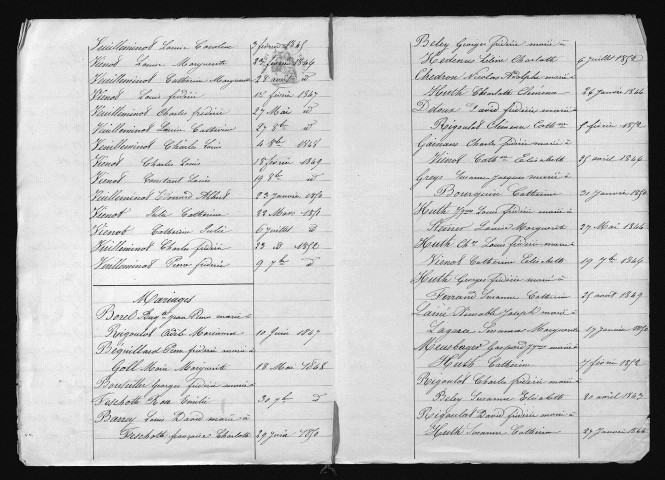 Vuilleminot Louise Caroline 3 février 1845
Vienot Louise Marguerite 22 février 1844
Vuilleminot Catherine Marguerite 28 avril d
Vienot Louis frédéric 12 février 1847
Vuilleminot Charles frédéric 27 Mai d
Vuilleminot Louise Catherine 27 8bre d
Vuilleminot Charles Louis 4 8bre 1848
Vienot Charles Louis 18 février 1849
Vienot Constant Louis 19 8bre d
Vuilleminot Edouard Albert 23 Janvier 1850
Vienot Julie Catherine 22 Mars 1851
Vienot Catherine Julie 6 Juillet d
Vuilleminot Charles frédéric 23 d 1852
Vuilleminot Pierre frédéric 9 7bre d
Mariages
Borel Jean Pierre marié à
Rigoulot Adèle Marianne 10 Juin 1847
Beguillard Pierre frédéric marié à
Goll Marie Marguerite 18 Mai 1848
Georges frédéric marié à
Feschotte Rosa Emilie 30 7bre d
Barry Louis David marié à
Feschotte françoise Charlotte 29 Juin 1850
Beley Georges frédéric marié à
Charlotte 6 Juillet 1852
Chedron Nicolas Adolphe marié à
Huth Charlotte Clémence 26 Janvier 1844
David frédéric marié à
Rigoulot Clémence Cathne 5 février 1852
Charles frédéric marié à
Vienot Cathne Elisabeth 25 avril 1844
Jacques marié à
Bourquin Catherine 31 Janvier 1850
Huth Louis frédéric marié à
Louise Marguerite 27 Mai 1844
Huth Louis frédéric marié à
Vienot Catherine Elisabeth 19 7bre 1844
Huth Georges frédéric marié à
Ferrand Suzanne Catherine 25 août 1849
Lainé Joseph marié à
Suzanne Marguerite 17 Janvier 1850
Gaspard marié à
Huth Catherine 7 février 1852
Rigoulot Charles frédéric marié à
Beley Suzanne Elisabeth 20 avril 1847
Rigoulot David frédéric marié à
Huth Suzanne Catherine 27 Janvier 1844